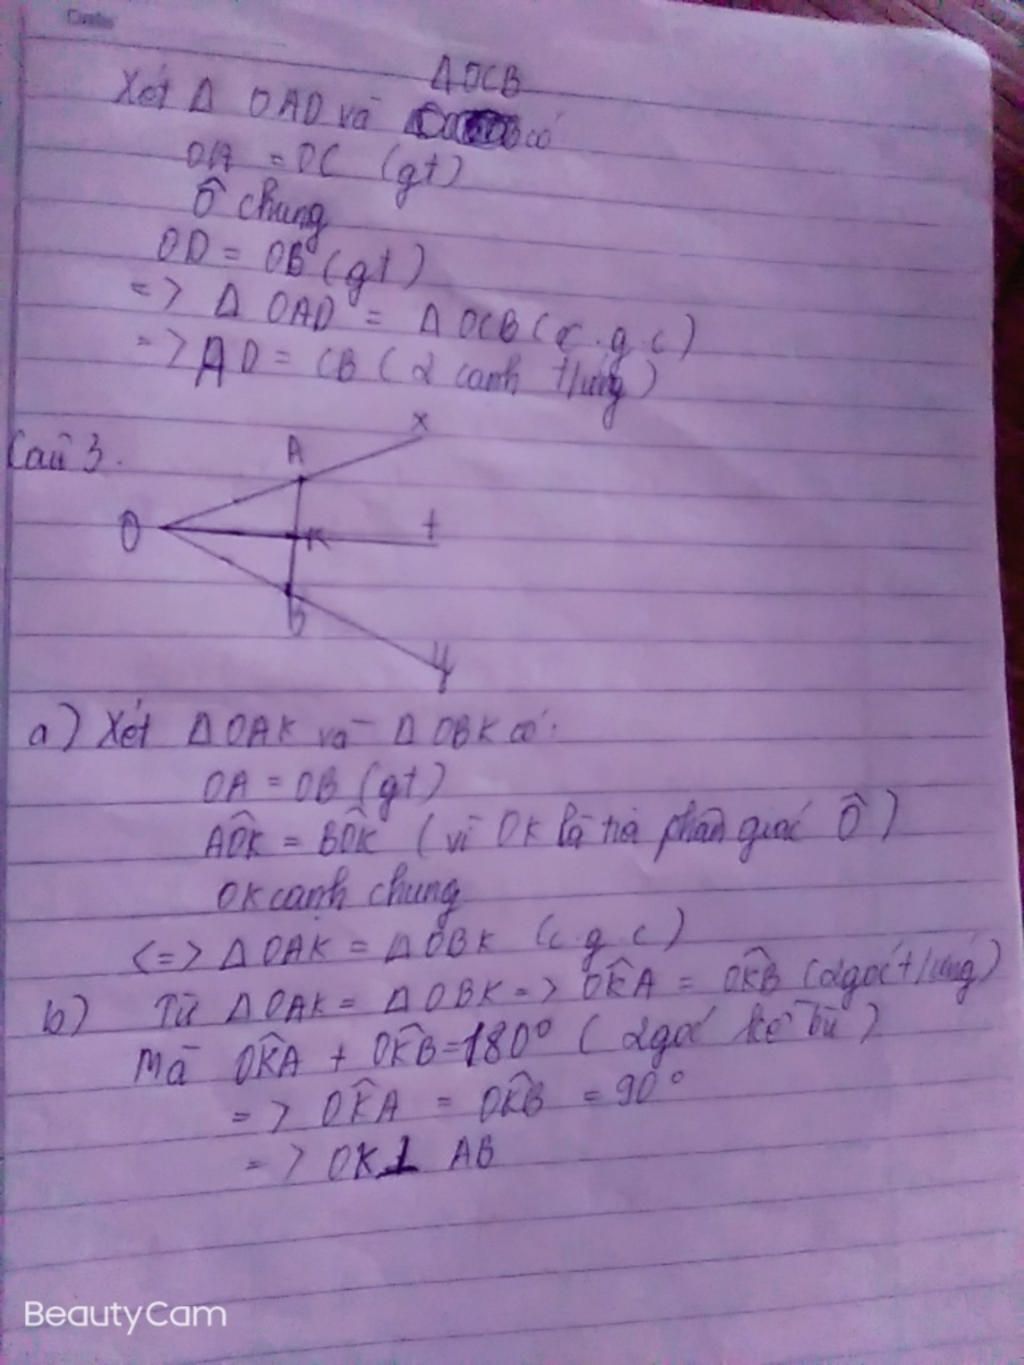 ΔOCB
Xét Δ OAD và có
OA = OC (gt)
Ô chung
OD = OB (gt)
=> Δ OAD = Δ OCB (c.g.c)
=> AD = CB (2 cạnh t/ứng)
x
A
Câu 3.
O
K
t
B
y
a) Xét Δ OAK và Δ OBK có:
OA = OB (gt)
AÔK = BÔK (vì OK là tia phân giác Ô)
OK cạnh chung
<=> Δ OAK = Δ OBK (c.g.c)
b) Từ Δ OAK = Δ OBK => OK̂A = OK̂B (2 góc t/ứng)
Mà OK̂A + OK̂B = 180° (2 góc kề bù)
=> OK̂A = OK̂B = 90°
=> OK ⊥ AB
BeautyCam